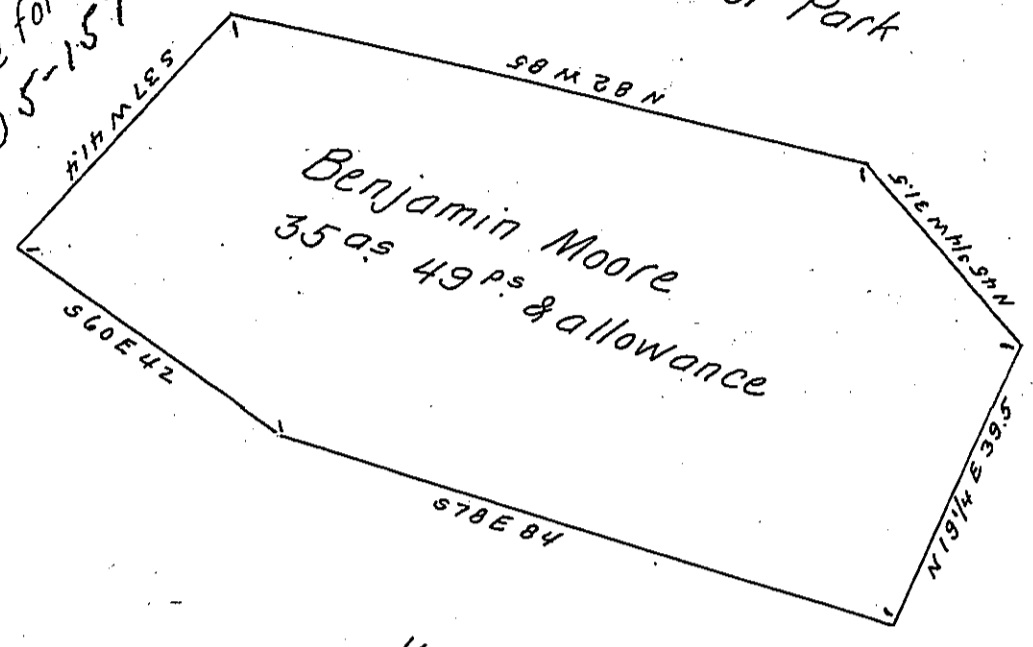 for
5-151
Park
N 82 W 85
S 37 W 41.4
N 45 3/4 W 31.5
Benjamin Moore
35 as 49 ps & allowance
S 60 E 42
S 78 E 84
N 19 1/4 E 39.5